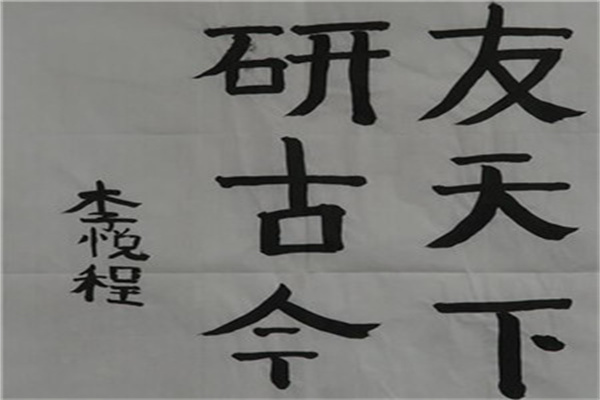 友天下
研古今
李悦程